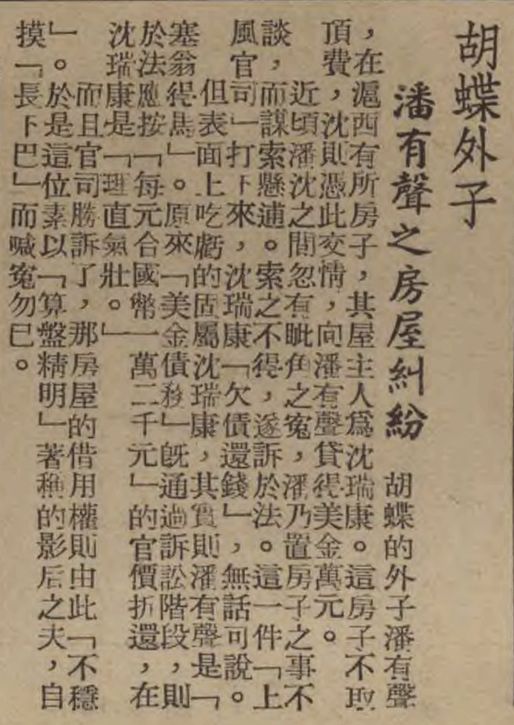 胡蝶外子
潘有聲之房屋糾紛
胡蝶的外子潘有聲
，在滬西有所房子，其屋主人爲沈瑞康。這房子不取
頂費，沈則憑此交情，向潘有聲貸得美金萬元。
近頃潘沈之間忽有眦角之寃，潘乃置房子之事不
談，而謀索懸逋。索之不得，遂訴於法。這一件「上
風官司」打下來，沈瑞康「欠債還錢」，無話可說。
但表面上吃虧的固屬沈瑞康，其實則潘有聲是「
塞翁得馬」。原來「美金債務」旣通過訴訟階段，則
於法應按「每元合國幣一萬二千元」的官價折還，在
沈瑞康是「理直氣壯。」
而且官司勝訴了，那房屋的借用權則由此「不穩
」。於是這位素以「算盤精明」著稱的影后之夫，自
摸「長下巴」而喊寃勿已。